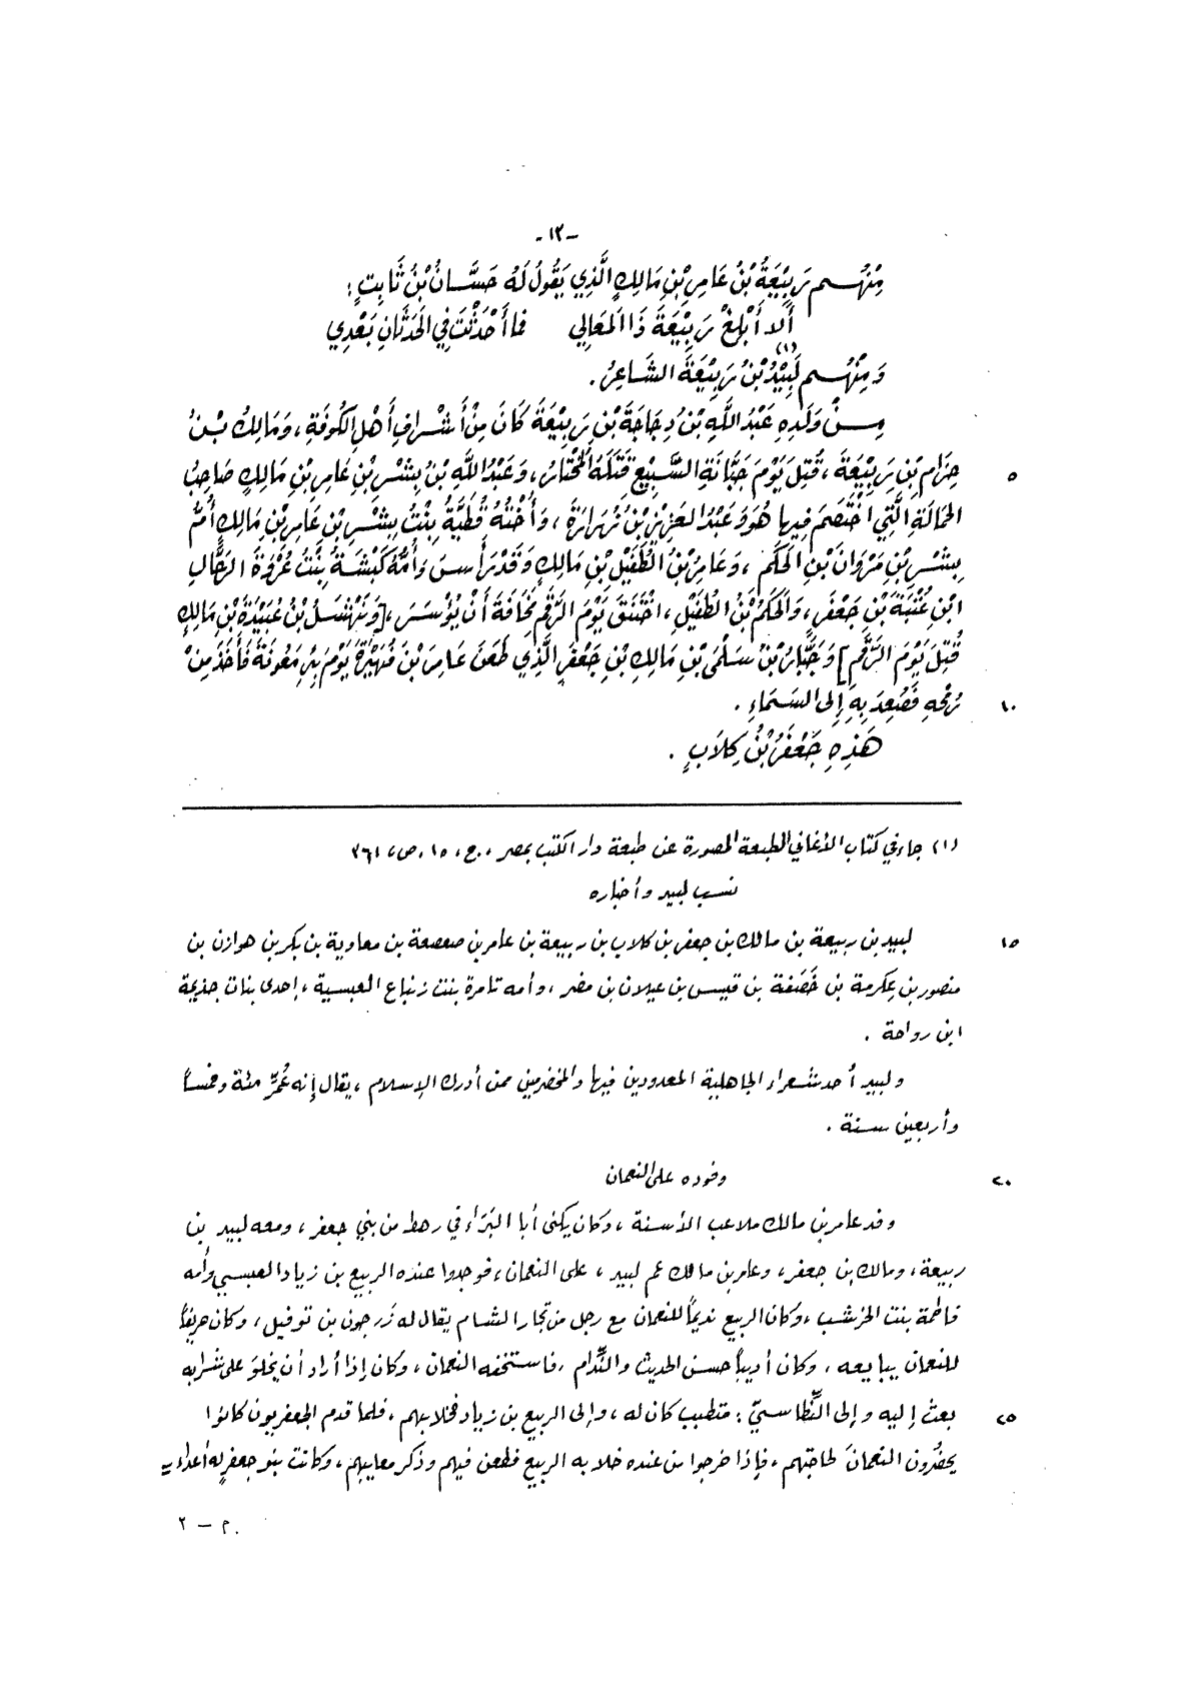 -١٢-
مِنْهُم رَبِيْعَةُ بْنُ عَامِرِ بْنِ مَالِكٍ الَّذِي يَقُولُ لَهُ حَسَّانُ بْنُ ثَابِتٍ :
أَلا أَبْلِغْ رَبِيْعَةَ ذَا المَعَالِي فما أَحْدَثْتَ فِي الحَدَثَانِ بَعْدِي
وَمِنْهُم لَبِيْدُ بْنُ رَبِيْعَةَ الشَاعِرُ . (١)
مِنْ وَلَدِهِ عَبْدُ اللَّهِ بْنُ دِجَاجَةَ بْنِ رَبِيْعَةَ كَانَ مِنْ أَشْرافِ أَهْلِ الكُوفَةِ ، وَمَالِكُ بْنُ
٥ حِزَامِ بْنِ رَبِيْعَةَ ، قُتِلَ يَوْمَ جَبَّانَةِ السَّبِيْعِ قَتَلَهُ المُخْتَارُ ، وَعَبْدُ اللَّهِ بْنُ بِشْرِ بْنِ عَامِرِ بْنِ مَالِكٍ صَاحِبُ
الحَمَالَةِ الَّتِي اخْتَصَمَ فِيها هُوَ وَعَبْدُ العَزِيْزِ بْنُ زُرَارَةَ ، وَأُخْتُهُ قُطَيَّةُ بِنْتُ بِشْرِ بْنِ عَامِرِ بْنِ مَالِكٍ أُمُّ
بِشْرِ بْنِ مَرْوَانَ بْنِ الحَكَمِ ، وَعَامِرُ بْنُ الطُّفَيْلِ بْنِ مَالِكٍ وَقَدْ رَأَسَ وَأُمُّهُ كَبْشَةُ بِنْتُ عُرْوَةَ الرَحَّالِ
ابْنِ عُتْبَةَ بْنِ جَعْفَرٍ ، وَالحَكَمُ بْنُ الطُفَيْلِ ، اخْتَنَقَ يَوْمَ الرَّقَمِ مَخَافَةَ أَنْ يُؤْسَرَ ، [وَنَهْشَلُ بْنُ عُبَيْدَةَ بْنِ مَالِكٍ
قُتِلَ يَوْمَ الرَّقَمِ] وَجَبَّارُ بْنُ سَلْمَى بْنِ مَالِكِ بْنِ جَعْفَرٍ الَّذِي طَعَنَ عَامِرَ بْنَ فُهَيْرَةَ يَوْمَ بِئْرِ مَعُونَةَ فَأَخَذَ مِنْ
١٠ رُمْحِهِ فَصُعِدَ بِهِ إِلى السَمَاءِ .
هَذِهِ جَعْفَرُ بْنُ كِلاَبٍ .
(١) جاء في كتاب الأغاني الطبعة المصورة عن طبعة دار الكتب بمصر ، ج ، ١٥ ، ص ، ٣٦١
نسب لبيد وأخباره
١٥ لبيد بن ربيعة بن مالك بن جعفر بن كلاب بن ربيعة بن عامر بن صعصعة بن معاوية بن بكر بن هوازن بن
منصور بن عِكرمة بن خَصَفة بن قيس بن عيلان بن مضر ، وأمه تامرة بنت زنباع العبسية ، إحدى بنات جذيمة
ابن رواحة .
ولبيد أحد شعراء الجاهلية المعدودين فيها والمخضرمين ممن أدرك الإسلام ، يقال إنه عُمِّر مئة وخمساً
وأربعين سنة .
٢٠ وفوده على النعمان
وفد عامر بن مالك ملاعب الأسنة ، وكان يكنى أبا البَرَاء في رهط من بني جعفر ، ومعه لبيد بن
ربيعة ، ومالك بن جعفر ، وعامر بن مالك عم لبيد ، على النعمان ، فوجدوا عنده الربيع بن زياد العبسي وأمه
فاطمة بنت الخرشب ، وكان الربيع نديماً للنعمان مع رجل من تجار الشام يقال له زرجون بن توفيل ، وكان حريفاً
للنعمان يبايعه ، وكان أديباً حسن الحديث والنِّدام ، فاستخفه النعمان ، وكان إذا أراد أن يخلوَ على شرابه
٢٥ بعث إليه وإلى النِّطاسيّ : متطبب كان له ، وإلى الربيع بن زياد فخلا بهم ، فلما قدم الجعفريون كانوا
يحضُرون النعمانَ لحاجتهم ، فإذا خرجوا من عنده خلا به الربيع فطعن فيهم وذكر معايبهم ، وكانت بنو جعفرٍ له أعداء =
م - ٢